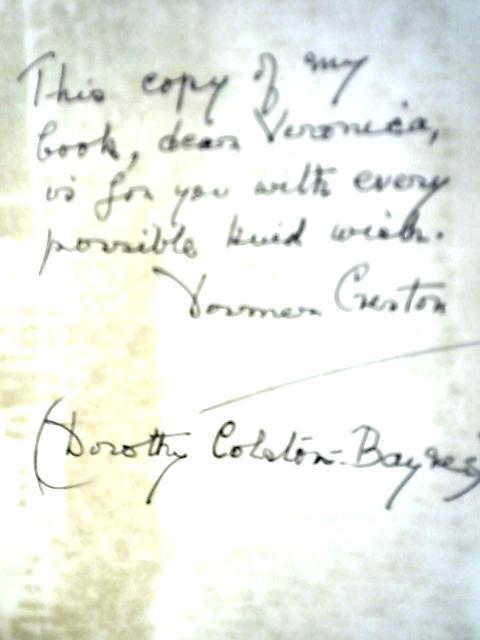 This copy of my
book, dear Veronica,
is for you with every
possible kind wish.
Dormer Creston
(Dorothy Colston-Baynes)